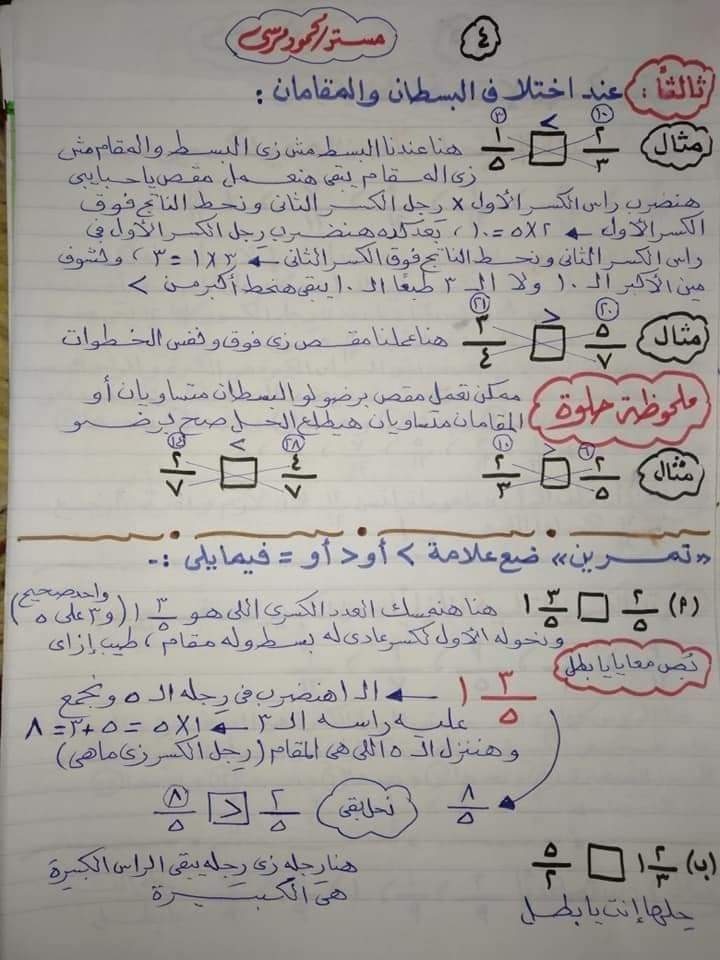 ٤
مستر/محمود مرسى
ثالثًا: عند اختلاف البسطان والمقامان:
١٠ < ٣
مثال ٢/٣ □ ١/٥ هنا عندنا البسط مش زى البسط والمقام مش
زى المقام يبقى هنعمل مقص يا حبايبى
هنضرب راس الكسر الأول × رجل الكسر الثانى ونحط الناتج فوق
الكسر الأول ← ٢×٥=١٠، بعد كده هنضرب رجل الكسر الأول فى
راس الكسر الثانى ونحط الناتج فوق الكسر الثانى ← ٣×١=٣، ونشوف
مين الأكبر الـ ١٠ ولا الـ ٣ طبعًا الـ ١٠ يبقى هنحط أكبر من >
٢٠ > ٢١
مثال ٥/٧ □ ٣/٤ هنا عملنا مقص زى فوق ونفس الخطوات
ملحوظة حلوة ممكن نعمل مقص برضو لو البسطان متساويان أو
المقامان متساويان هيطلع الحل صح برضو
٦ > ١٠ ٢٨ < ١٤
مثال ٢/٥ □ ٢/٣ ٤/٧ □ ٢/٧
«تمرين» ضع علامة > أو < أو = فيما يلى :-
(أ) ٢/٥ □ ١ ٣/٥ هنا هنمسك العدد الكسرى اللى هو ١ ٣/٥ (واحد صحيح و ٣ على ٥)
ونحوله الأول لكسر عادى له بسط وله مقام، طيب إزاى
بُص معايا يا بطل
١ ٣/٥ ← الـ ١ هنضرب فى رجله الـ ٥ ونجمع
عليه راسه الـ ٣ ← ١×٥=٥+٣=٨
وهننزل الـ ٥ اللى هى المقام (رجل الكسر زى ماهى)
٨/٥ نحل بقى ٢/٥ > ٨/٥
هنا رجله زى رجله يبقى الراس الكبيرة
هى الكبيرة
(ب) ١ ٢/٣ □ ٥/٢
حلها إنت يا بطل